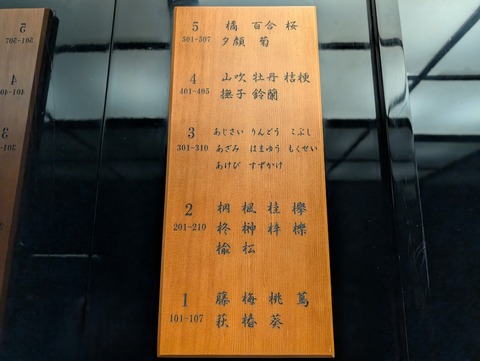 5 橘 百合 桜
501-507 夕顔 菊
4 山吹 牡丹 桔梗
401-405 撫子 鈴蘭
3 あじさい りんどう こぶし
301-310 あざみ はまゆう もくせい
あけび すずかけ
2 桐 楓 桂 欅
201-210 柊 榊 梓 櫟
楡 松
1 藤 梅 桃 蔦
101-107 萩 椿 葵